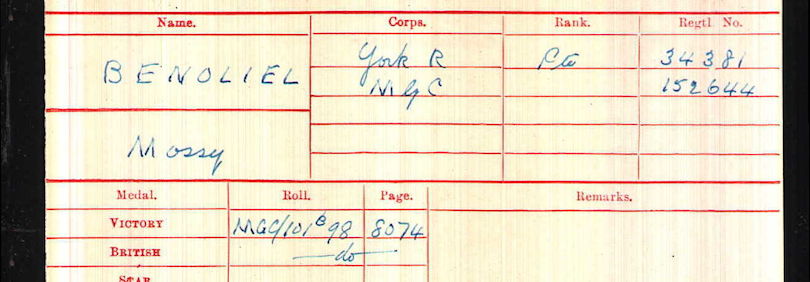 Name. Corps. Rank. Regtl. No.
BENOLIEL York R Pte 34381
MGC 152644
Mossy
Medal. Roll. Page. Remarks.
VICTORY MGC/101B98 8074
BRITISH —do—
STAR